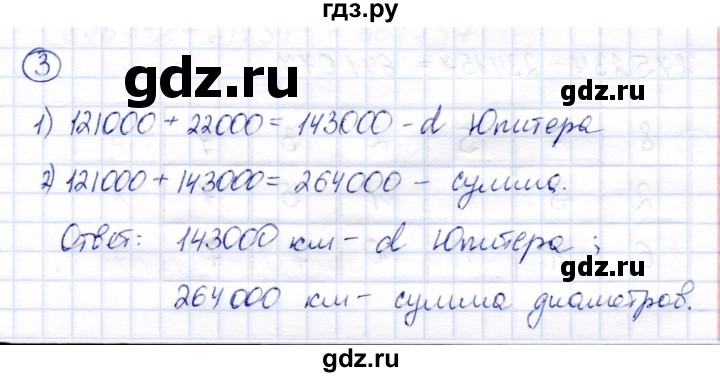 гдз.ру
3
gdz.ru
1) 121000 + 22000 = 143000 - d Юпитера
2) 121000 + 143000 = 264000 - сумма.
Ответ: 143000 км - d Юпитера ;
gdz.ru
264000 км - сумма диаметров.
gdz.ru